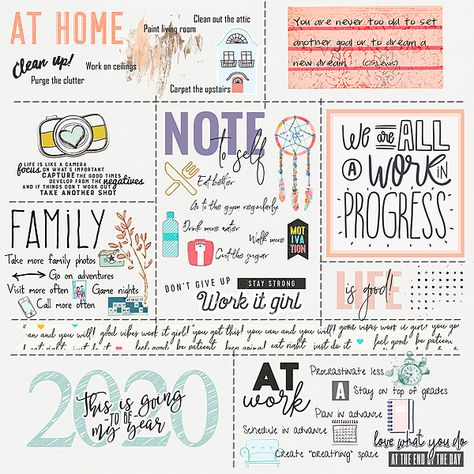 AT HOME
Clean up!
Purge the clutter
Work on ceilings
Paint living room
Clean out the attic
Carpet the upstairs
You are never too old to set
another goal or to dream a
new dream. (CS Lewis)
LIFE IS LIKE A CAMERA
focus ON WHAT'S IMPORTANT
CAPTURE THE GOOD TIMES
DEVELOP FROM THE negatives
AND IF THINGS DON'T WORK OUT
TAKE ANOTHER SHOT
NOTE
to self
Eat better
Go to the gym regularly
Drink more water
Walk more
Cut the sugar
MOT
IVA
TION
DON'T GIVE UP
STAY STRONG
Work it girl
We are ALL
A WORK IN
PROGRESS
FAMILY
Take more family photos
Go on adventures
Visit more often
Game nights
Call more often
LIFE
is good!
can and you will! good vibes work it girl! you got this! you can and you will! good vibes work it girl! you go
eat right just do it feel good be patient keep going eat right just do it! feel good be patient
2020
This is going
to be
my year
AT
work
Procrastinate less
A
Stay on top of grades
Plan in advance
Schedule in advance
Create "breathing" space
love what you do
AT THE END OF THE DAY